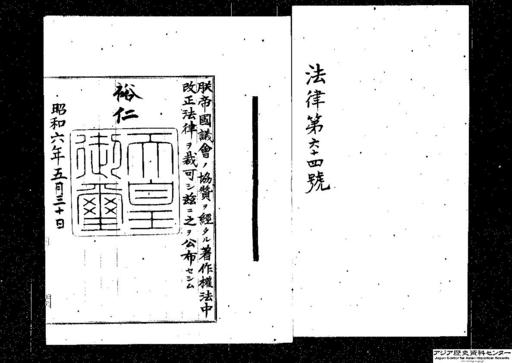 法律第六十四號
朕帝國議會ノ協賛ヲ經タル著作權法中
改正法律ヲ裁可シ玆ニ之ヲ公布セシム
裕仁
天皇
御璽
昭和六年五月三十日
アジア歴史資料センター
Japan Center for Asian Historical Records